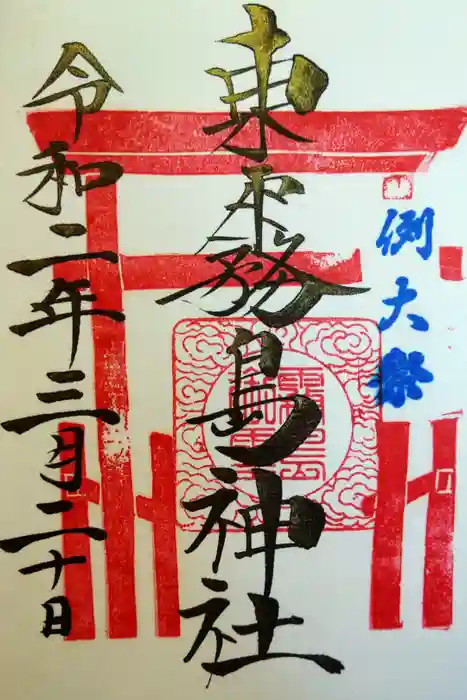 例大祭
東霧島神社
令和二年三月二十日